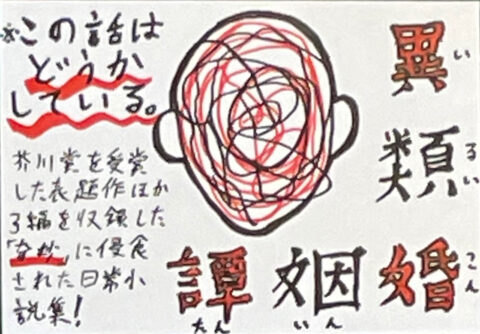 異類婚姻譚
いるいこんいんたん
※この話は
どうか
している。
芥川賞を受賞
した表題作ほか
3編を収録した
「奇妙」に侵食
された日常小
説集!